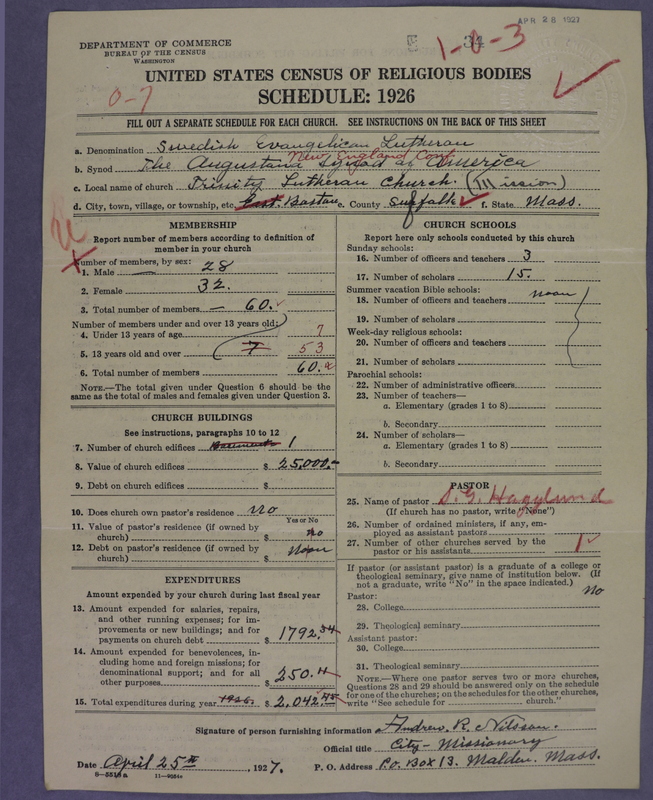 DEPARTMENT OF COMMERCE
BUREAU OF THE CENSUS
WASHINGTON
APR 28 1927
34
1-0-3
0-7
UNITED STATES CENSUS OF RELIGIOUS BODIES
SCHEDULE: 1926
FILL OUT A SEPARATE SCHEDULE FOR EACH CHURCH. SEE INSTRUCTIONS ON THE BACK OF THIS SHEET
a. Denomination Swedish Evangelican Lutheran
New England Conf.
b. Synod The Augustana Synod of America
c. Local name of church Trinity Lutheran Church. (Mission)
d. City, town, village, or township, etc. East Boston e. County Suffolk f. State Mass.
MEMBERSHIP
Report number of members according to definition of
member in your church
Number of members, by sex:
1. Male 28
2. Female 32.
3. Total number of members 60.
Number of members under and over 13 years old:
4. Under 13 years of age 7
5. 13 years old and over 7 53
6. Total number of members 60.a
NOTE.—The total given under Question 6 should be the
same as the total of males and females given under Question 3.
CHURCH BUILDINGS
See instructions, paragraphs 10 to 12
7. Number of church edifices 1
8. Value of church edifices $ 25,000.-
9. Debt on church edifices $
10. Does church own pastor's residence? No
Yes or No
11. Value of pastor's residence (if owned by
church) $ no
12. Debt on pastor's residence (if owned by
church) $ noon
EXPENDITURES
Amount expended by your church during last fiscal year
13. Amount expended for salaries, repairs,
and other running expenses; for im-
provements or new buildings; and for
payments on church debt $ 1792.34
14. Amount expended for benevolences, in-
cluding home and foreign missions; for
denominational support; and for all
other purposes $ 250.11
15. Total expenditures during year 1926. $ 2,042.45
CHURCH SCHOOLS
Report here only schools conducted by this church
Sunday schools:
16. Number of officers and teachers 3
17. Number of scholars 15.
Summer vacation Bible schools:
18. Number of officers and teachers noon
19. Number of scholars
Week-day religious schools:
20. Number of officers and teachers
21. Number of scholars
Parochial schools:
22. Number of administrative officers
23. Number of teachers—
a. Elementary (grades 1 to 8)
b. Secondary
24. Number of scholars—
a. Elementary (grades 1 to 8)
b. Secondary
PASTOR
25. Name of pastor S. G. Hagglund
(If church has no pastor, write "None")
26. Number of ordained ministers, if any, em-
ployed as assistant pastors
27. Number of other churches served by the
pastor or his assistants 1
If pastor (or assistant pastor) is a graduate of a college or
theological seminary, give name of institution below. (If
not a graduate, write "No" in the space indicated.)
Pastor: no
28. College
29. Theological seminary
Assistant pastor:
30. College
31. Theological seminary
NOTE.—Where one pastor serves two or more churches,
Questions 28 and 29 should be answered only on the schedule
for one of the churches; on the schedules for the other churches,
write "See schedule for church."
Signature of person furnishing information Andrew R. Nilsson.
Official title City-Missionary
Date April 25th, 1927. P. O. Address P.O. Box 13. Malden. Mass.
8—5518a 11—9264